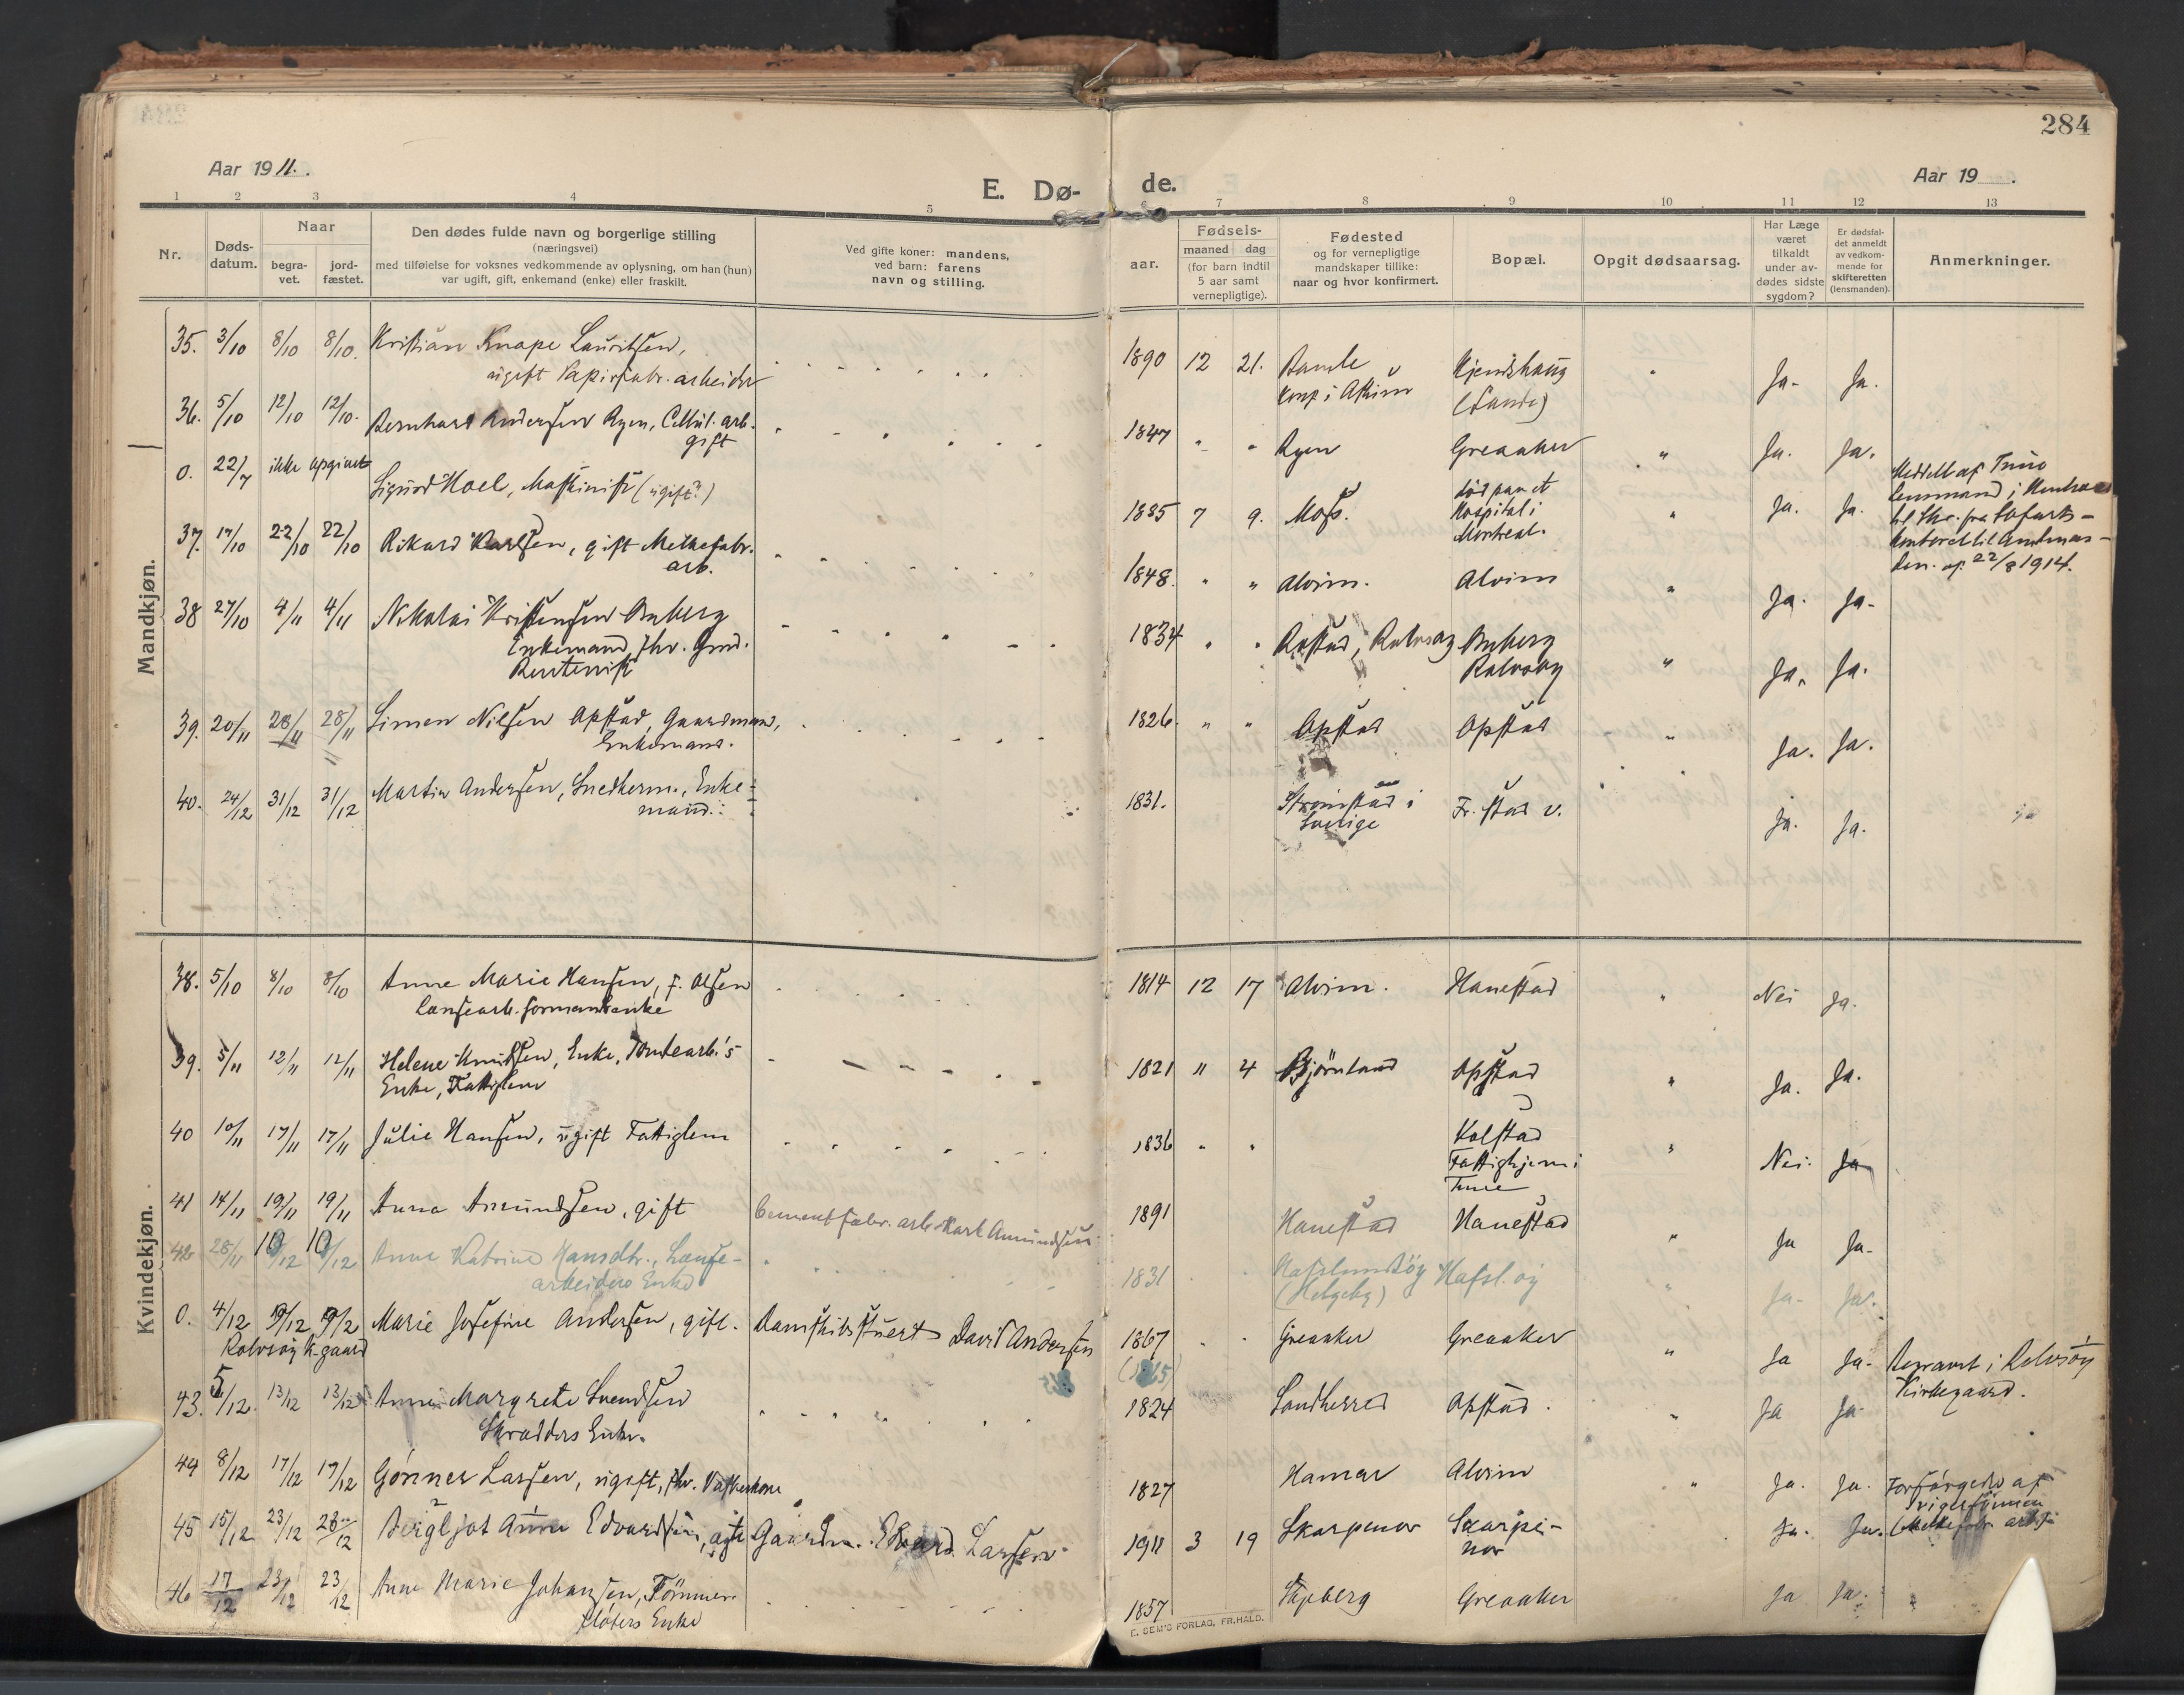 284
Aar 1911.
E. Dø-
de.
Aar 19
1 2 3 4 5 6 7 8 9 10 11 12 13
Nr.
Døds-
datum.
Naar
begra-
vet.
jord-
fæstet.
Den dødes fulde navn og borgerlige stilling
(næringsvei)
med tilføielse for voksnes vedkommende av oplysning, om han (hun)
var ugift, gift, enkemand (enke) eller fraskilt.
Ved gifte koner: mandens,
ved barn: farens
navn og stilling.
aar.
Fødsels-
maaned dag
(for barn indtil
5 aar samt
vernepligtige).
Fødested
og for vernepligtige
mandskaper tillike:
naar og hvor konfirmert.
Bopæl.
Opgit dødsaarsag.
Har Læge
været
tilkaldt
under av-
dødes sidste
sygdom?
Er dødsfal-
det anmeldt
av vedkom-
mende for
skifteretten
(lensmanden).
Anmerkninger.
Mandkjøn.
35. 3/10 8/10 8/10. Kristian Knape Lauritsen, 1890 12 21. Bamle Kjendshaug " Ja- Ja.
ugift Papirfabr. arbeider konf i Askim (Sande)
36. 5/10 12/10 12/10. Bernhard Andersen Ryen, Cellul. arb. 1847 " " Ryen Greaaker " Ja. Ja.
gift
0. 22/7 ikke opgivet Sigurd Hoel, Maskinist (ugift?) 1885 7 9. Moss. død paa et " Ja. Ja. Meddelt af Tune
Hospital i Lensmand i
Montreal. kontoret til Amtman-
den. af 22/8 1914.
37. 17/10 22/10 22/10 Rikard Karlsen, gift Melkefabr. 1848. " " Alvim. Alvim " Ja. Ja-
arb.
38 27/10 4/11 4/11 Nikolai Kristensen Buberg 1834 " " Rostad, Rolvsøy Buberg " Ja. Ja.
Enkemand, fhv. Grd. Rolvsøy
Rentenist
39. 20/11 28/11 28/11 Simen Nilsen Opstad, Gaardmand, 1826. " " Opstad Opstad " Ja. Ja.
Enkemand.
40. 24/12 31/12 31/12 Martin Andersen, Snedkerm., Enke- 1831. Strømstad i Fr.stad v. Ja. Ja.
mand. Sverige
Kvindekjøn.
38. 5/10 8/10 8/10 Anne Marie Hansen, f. Olsen 1814 12 17 Alvim. Hanestad " Nei Ja.
Lænsearb. formandsenke
39. 5/11 12/11 12/11 Helene Knudsen, Enke, Tomtearb.'s 1821 11 4 Bjørnland Opstad " Ja. Ja.
Enke, Fattiglem
40 10/11 17/11 17/11 Julie Hansen, ugift Fattiglem 1836 " " Kolstad " Nei. Ja
Fattighjem i
Tune
41 14/11 19/11 19/11 Anna Amundsen, gift Cementfabr. arb. Karl Amundsen. 1891 Hanestad Hanestad " Ja Ja-
42 28/11 10/12 10/12 Anne Katrine Hansdtr., Lænse- 1831 Hafslundsøy Hafsl.øy " Ja- Ja.
arbeiders Enke (Helgeby)
0. 4/12 9/12 9/12 Marie Josefine Andersen, gift. Damskibsstuert David Andersen 1867 Greaaker Greaaker " Ja Ja- Begravet i Rolvsøy
Rolvsøy k.gaard (1865) Kirkegaard.
43. 5/12. 13/12 13/12 Anne Margrete Svendsen 1824 Sandherred Opstad. " Ja Ja-
Skrædders Enke.
44 8/12 17/12 17/12 Gønner Larsen, ugift, fhv. Vaskerkone 1827 Hamar Alvim " Ja. Ja. Forsørgedes af
45 15/12 23/12 23/12 Bergljot Anna Edvardsen, ægte Gaardm. Edvard Larsen. 1911 3 19 Skarpenor Skarpe- Ja. Ja. (Melkefabr. arb.)
nor
46 17/12 23/12 23/12 Anne Marie Johansen, Tømmer- 1857 Skjeberg Greaaker Ja Ja.
fløters Enke
E. SEM'S FORLAG, FR.HALD.